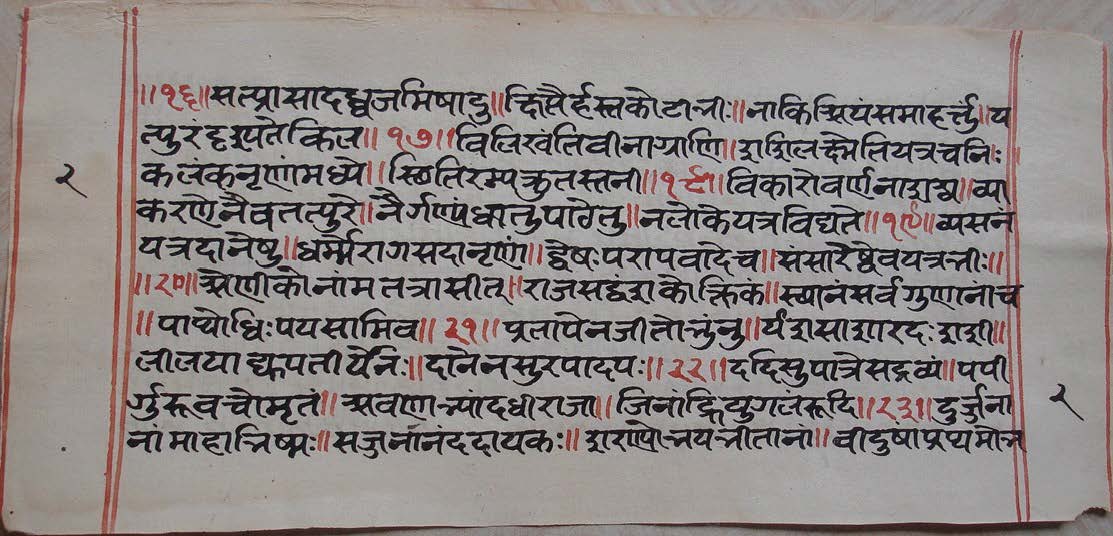 ॥१६॥सत्प्रासादद्धजमिषादु॥क्षिप्तैर्हस्तकोटानीः॥नाकिश्रियंसमाहर्त्तु॥य
त्पुरंदृश्यतेकिल॥१७॥विलिखंतिवीनाग्राणि॥शशिलक्ष्मेतियत्रचनिः
कलंकनृणांमध्ये॥स्छितिरम्पत्कुतस्तनी॥१८॥विकारोवर्णनाशश्च॥व्या
करणेनैवतत्पुरे॥नैर्गुण्यंधातुपाठेतु॥नलोकेयत्रविद्यते॥१९॥व्यसनं
यत्रदानेषु॥धर्म्मेरागसदानृणं॥द्वेषःपरापवादेच॥संसारेष्वेवयत्रनीः॥
॥२०॥श्रेणीकोनांमतत्रासीत्॥राजसद्वंशकोक्तिकं॥स्थानंसर्वगुणानांच
॥पाथोधिःपयसामिव॥२१॥प्रतापेनजीतोन्नुंनु॥र्यशसाशारदःशशी॥
लीलयाद्यपतीर्येनिः॥दानेनसुरपादपः॥२२॥ददेसुपात्रेसद्रव्यं॥पपी
र्गुरूवचोमृतं॥श्रवणेन्यांदधौराजा॥जिनांह्रियुगलंरूदि॥२३॥दुर्जना
नांमाहान्निष्मः॥सजुनांनंददायकः॥शरण्योन्नयन्नीतानां॥वीदुषांप्रथमोन्न
२
२